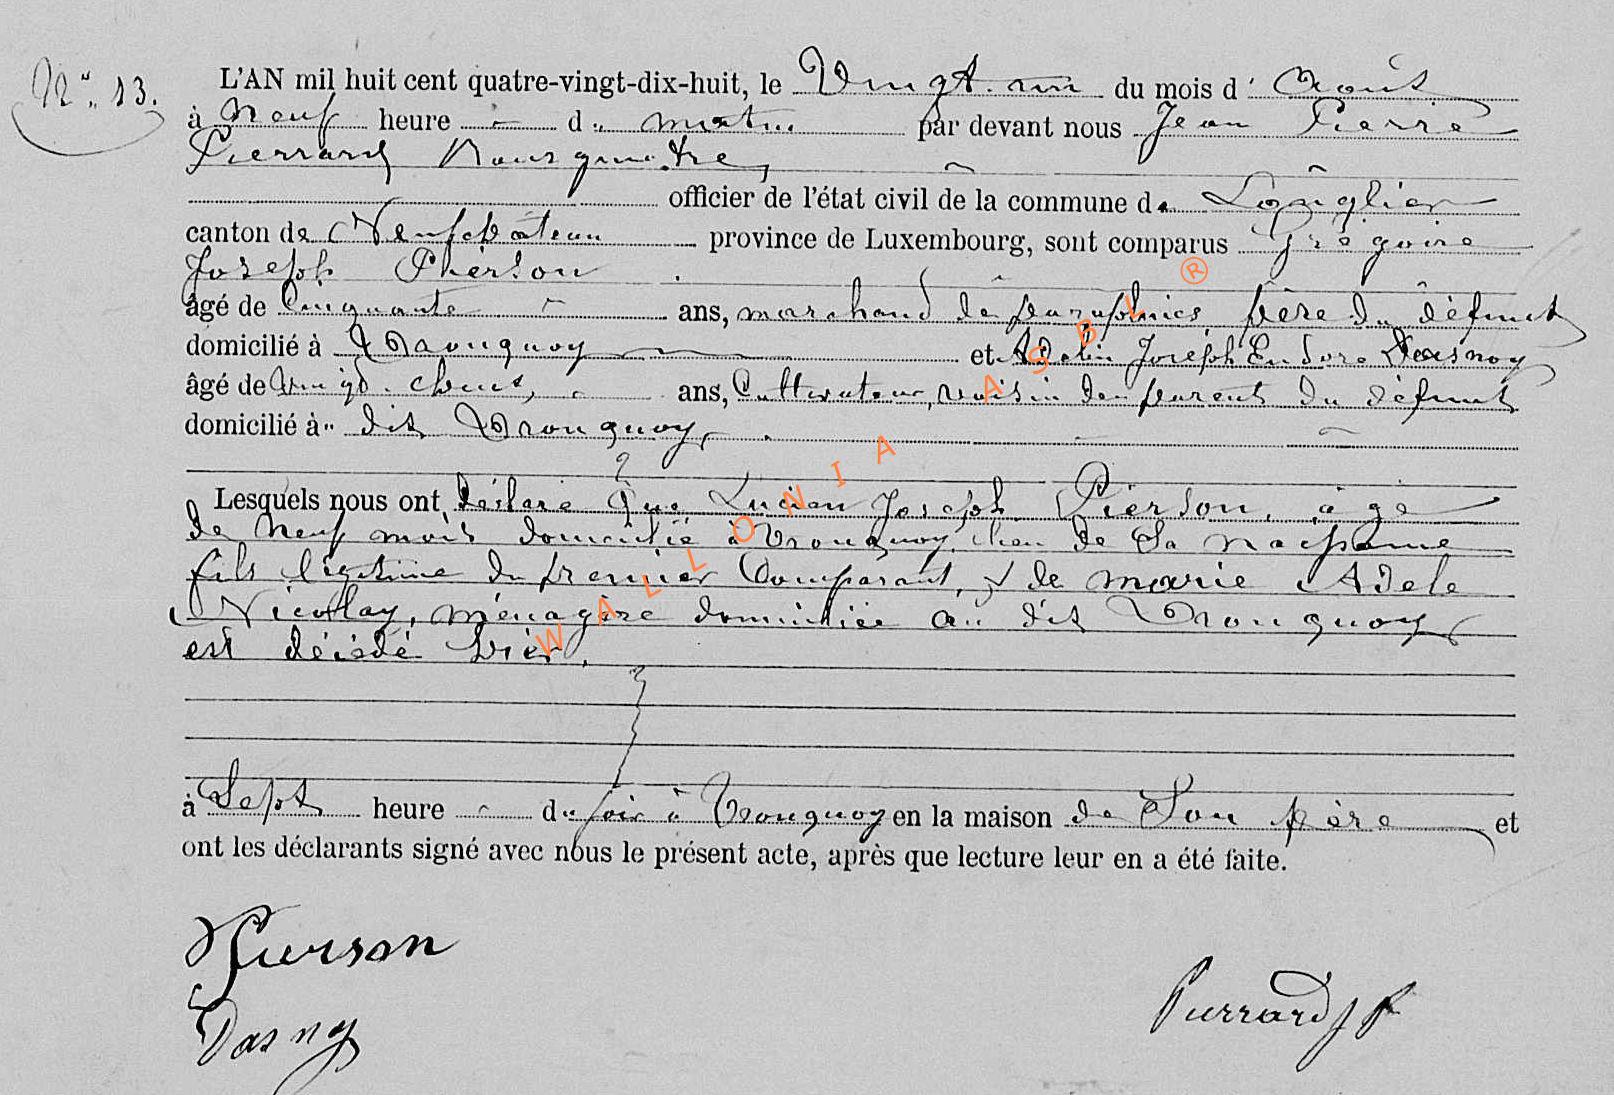 N° 13.
L'AN mil huit cent quatre-vingt-dix-huit, le Vingt un du mois d' Août
à neuf heure d u matin par devant nous Jean Pierre
Pierrard Bourgmestre,
officier de l'état civil de la commune de Longlier
canton de Neufchâteau province de Luxembourg, sont comparus Grégoire
Joseph Pierson
âgé de Cinquante ans, marchand de parapluies père du défunt
domicilié à Tronquoy et Adelin Joseph Dasnoy
âgé de Vingt ans, Cultivateur, voisin des parents du défunt
domicilié à dit Tronquoy,
Lesquels nous ont déclaré que Lucien Joseph Pierson, âgé
de neuf mois domicilié à Tronquoy, lieu de sa naissance
fils légitime du premier Comparant, & de marie Adele
Nicolay, ménagère domiciliée au dit Tronquoy
est décédé hier.
à Sept heure du soir à Tronquoy en la maison de Son père et
ont les déclarants signé avec nous le présent acte, après que lecture leur en a été faite.
Pierson
Dasnoy
Pierrard J P
WALLONIA ASBL ®